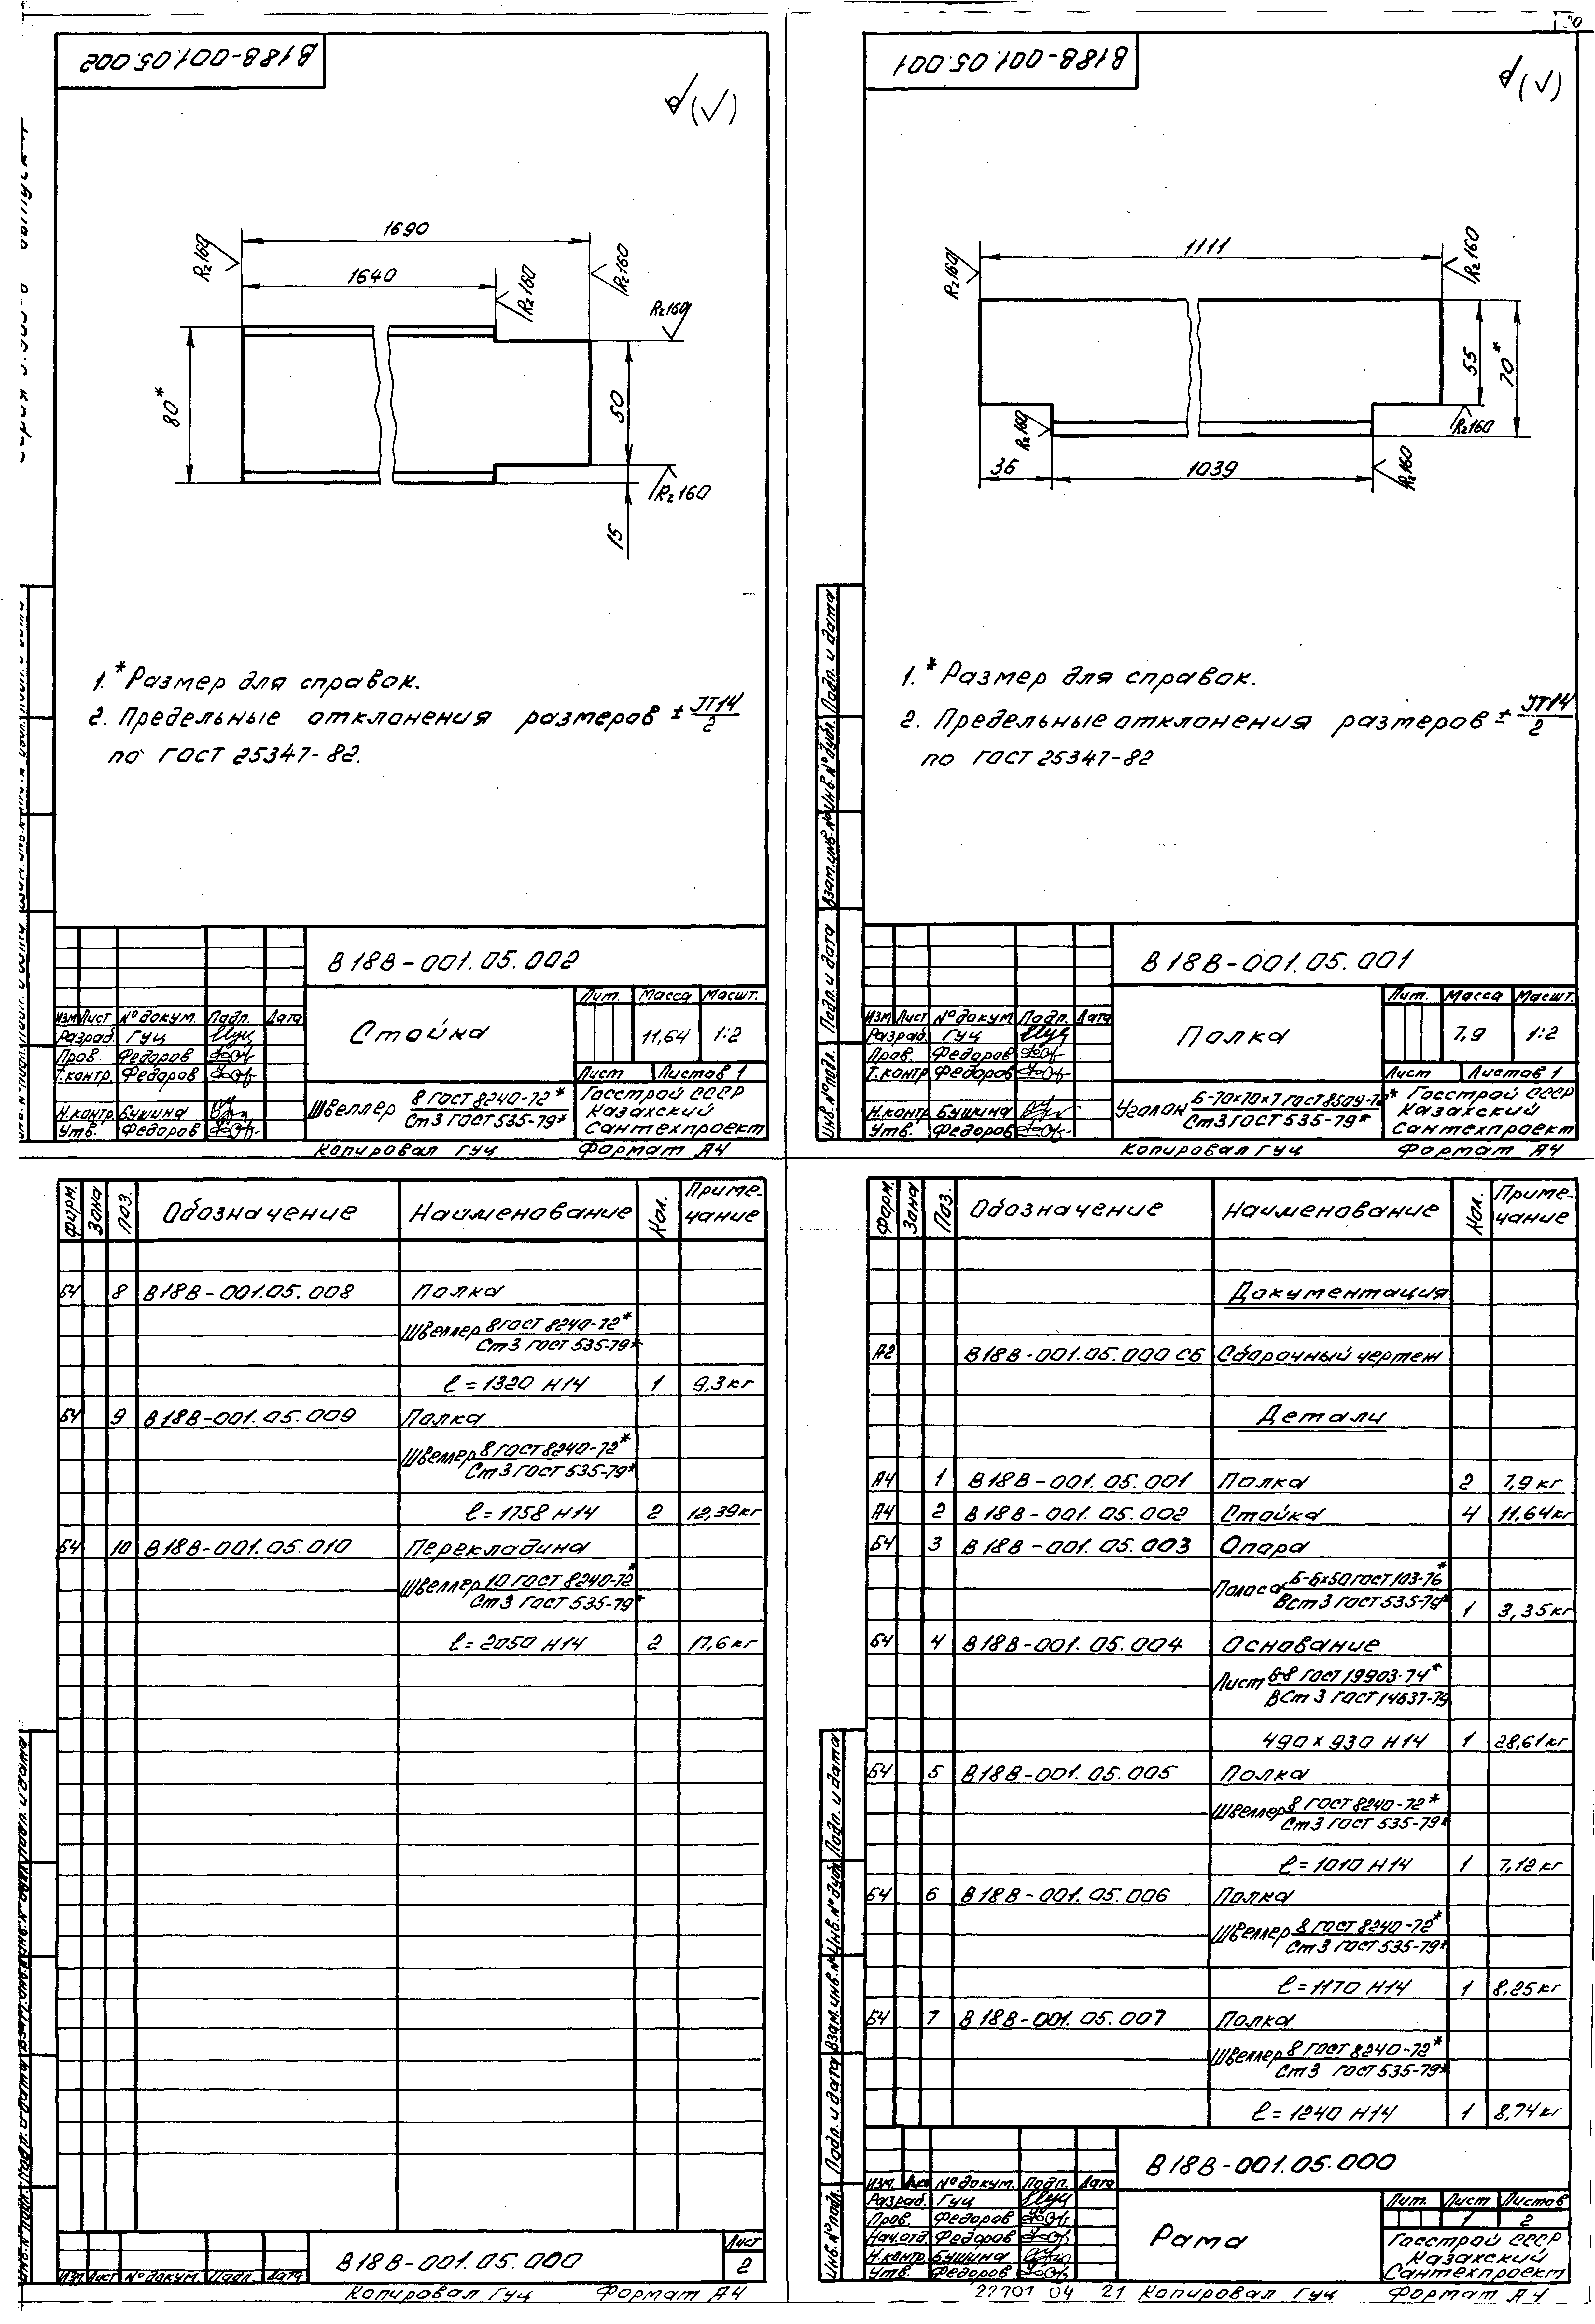 В18В-001.05.002
√(√)
1690
1640
Rz160
Rz160
Rz160
Rz160
80*
50
15
Rz160
1. *Размер для справок.
2. Предельные отклонения размеров ± JT14/2
по ГОСТ 25347-82.
В18В-001.05.002
Стойка
Лит. Масса Масшт.
11,64 1:2
Лист Листов 1
Изм Лист № докум. Подп. Дата
Разраб. Гуц
Пров. Федоров
Т.контр. Федоров
Н.контр. Бушина
Утв. Федоров
Швеллер 8 ГОСТ 8240-72* / Ст3 ГОСТ 535-79*
Госстрой СССР
Казахский
Сантехпроект
Копировал Гуц Формат А4
В18В-001.05.001
√(√)
1111
Rz160
Rz160
55
70*
Rz160
Rz160
Rz160
36
1039
1. *Размер для справок.
2. Предельные отклонения размеров ± JT14/2
по ГОСТ 25347-82
Подп. и дата
Инв.№ дубл.
Взам.инв.№
Подп. и дата
Инв.№ подл.
В18В-001.05.001
Полка
Лит. Масса Масшт.
7,9 1:2
Лист Листов 1
Изм Лист № докум. Подп. Дата
Разраб. Гуц
Пров. Федоров
Т.контр. Федоров
Н.контр. Бушина
Утв. Федоров
Уголок Б-70х70х7 ГОСТ 8509-72* / Ст3 ГОСТ 535-79*
Госстрой СССР
Казахский
Сантехпроект
Копировал Гуц Формат А4
Форм. Зона Поз. Обозначение Наименование Кол. Приме-чание
БЧ 8 В18В-001.05.008 Полка
Швеллер 8 ГОСТ 8240-72* / Ст3 ГОСТ 535-79*
ℓ=1320 H14 1 9,3кг
БЧ 9 В18В-001.05.009 Полка
Швеллер 8 ГОСТ 8240-72* / Ст3 ГОСТ 535-79*
ℓ=1758 H14 2 12,39кг
БЧ 10 В18В-001.05.010 Перекладина
Швеллер 10 ГОСТ 8240-72* / Ст3 ГОСТ 535-79*
ℓ=2050 H14 2 17,6кг
Изм. Лист № докум. Подп. Дата
В18В-001.05.000
Лист
2
Копировал Гуц Формат А4
Форм. Зона Поз. Обозначение Наименование Кол. Приме-чание
Документация
А2 В18В-001.05.000 СБ Сборочный чертеж
Детали
А4 1 В18В-001.05.001 Полка 2 7,9кг
А4 2 В18В-001.05.002 Стойка 4 11,64кг
БЧ 3 В18В-001.05.003 Опора
Полоса Б-6х50 ГОСТ 103-76* / ВСт3 ГОСТ 535-79*
1 3,35кг
БЧ 4 В18В-001.05.004 Основание
Лист Б-8 ГОСТ 19903-74* / ВСт3 ГОСТ 14637-79
490х930 H14 1 28,61кг
БЧ 5 В18В-001.05.005 Полка
Швеллер 8 ГОСТ 8240-72* / Ст3 ГОСТ 535-79*
ℓ=1010 H14 1 7,12кг
БЧ 6 В18В-001.05.006 Полка
Швеллер 8 ГОСТ 8240-72* / Ст3 ГОСТ 535-79*
ℓ=1170 H14 1 8,25кг
БЧ 7 В18В-001.05.007 Полка
Швеллер 8 ГОСТ 8240-72* / Ст3 ГОСТ 535-79*
ℓ=1240 H14 1 8,74кг
Подп. и дата
Инв.№ дубл.
Взам.инв.№
Подп. и дата
Инв.№ подл.
В18В-001.05.000
Рама
Лит. Лист Листов
1 2
Изм. Лист № докум. Подп. Дата
Разраб. Гуц
Пров. Федоров
Нач.отд. Федоров
Н.контр. Бушина
Утв. Федоров
Госстрой СССР
Казахский
Сантехпроект
22701 04 21 Копировал Гуц Формат А4